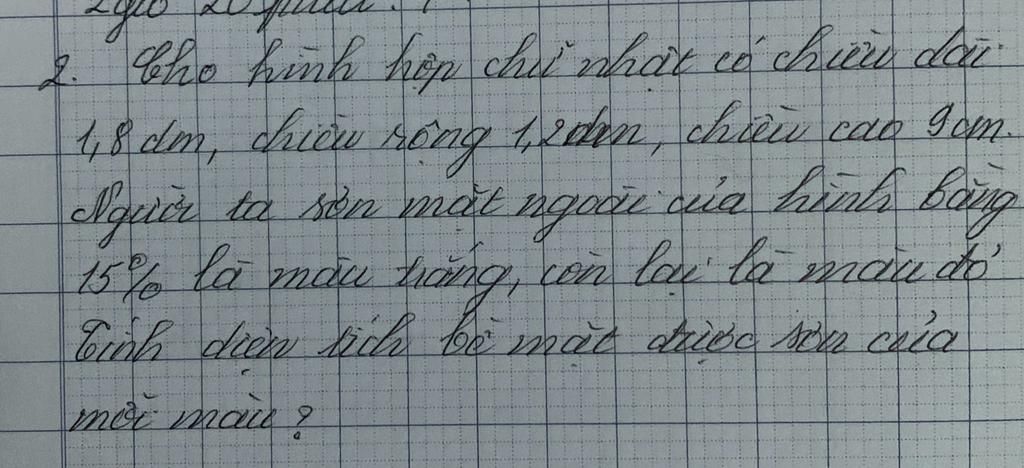 2. Cho hình hộp chữ nhật có chiều dài
1,8 dm, chiều rộng 1,2dm, chiều cao 9cm.
Người ta sơn mặt ngoài của hình bằng
15% là màu trắng, còn lại là màu đỏ
Tính diện tích bề mặt được sơn của
mỗi màu?